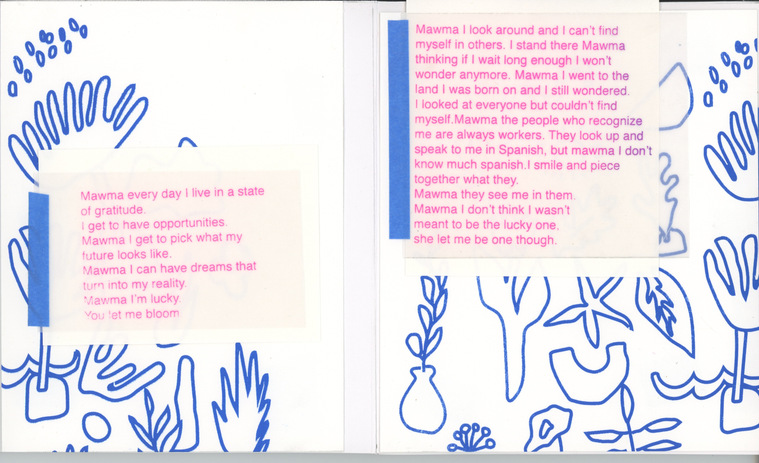 Mawma every day I live in a state
of gratitude.
I get to have opportunities.
Mawma I get to pick what my
future looks like.
Mawma I can have dreams that
turn into my reality.
Mawma I'm lucky.
You let me bloom
Mawma I look around and I can't find
myself in others. I stand there Mawma
thinking if I wait long enough I won't
wonder anymore. Mawma I went to the
land I was born on and I still wondered.
I looked at everyone but couldn't find
myself.Mawma the people who recognize
me are always workers. They look up and
speak to me in Spanish, but mawma I don't
know much spanish.I smile and piece
together what they.
Mawma they see me in them.
Mawma I don't think I wasn't
meant to be the lucky one.
she let me be one though.